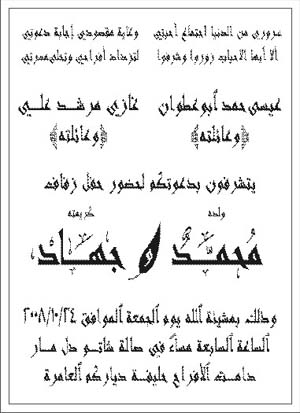 سروري من الدنيا اجتماع احبتي وغاية مقصودي إجابة دعوتي
ألا أيها الاحباب زوروا وشرفوا لتزداد أفراحي وتحلى مسرتي
عيسى حمد أبو عطوان غازي مرشد علي
﴿وعائلته﴾ ﴿وعائلته﴾
يتشرفون بدعوتكم لحضور حفل زفاف
ولده كريمته
مُحمَّدٌ و جهاد
وذلك بمشيئة الله يوم الجمعة الموافق ٢٠٠٨/١٠/٢٤
الساعة السابعة مساءً في صالة شاتو دل مار
دامت الأفراح حليفة دياركم العامرة